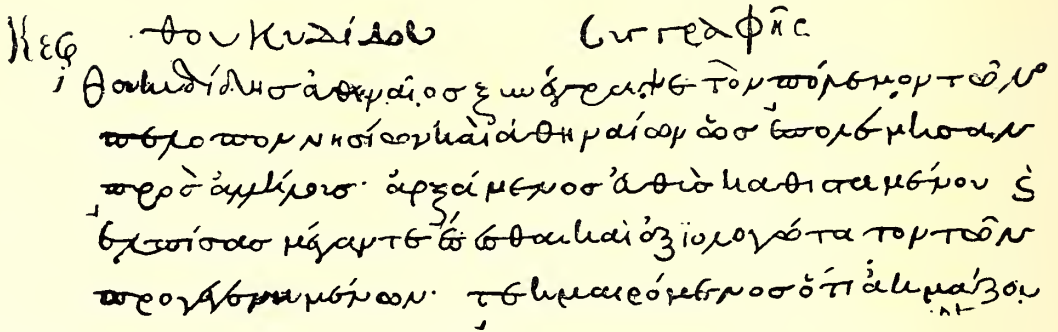 Κεφ θουκυδίδου συγγραφῆς
θουκυδίδησ ἀθηναῖοσ ξυνέγραψε τὸν πόλεμον τῶν
πελοποννησίων καὶ ἀθηναίων ὡσ ἐπολέμησαν
πρὸσ ἀλλήλουσ· ἀρξάμενοσ ἐυθὺσ καθισταμένου ὲ
ἐλπίσασ μέγαν τε ἔσεσθαι καὶ ἀξϊολογώτατον τῶν
προγεγενημένων· τεκμαιρόμενοσ ὅτι ἀκμάζον